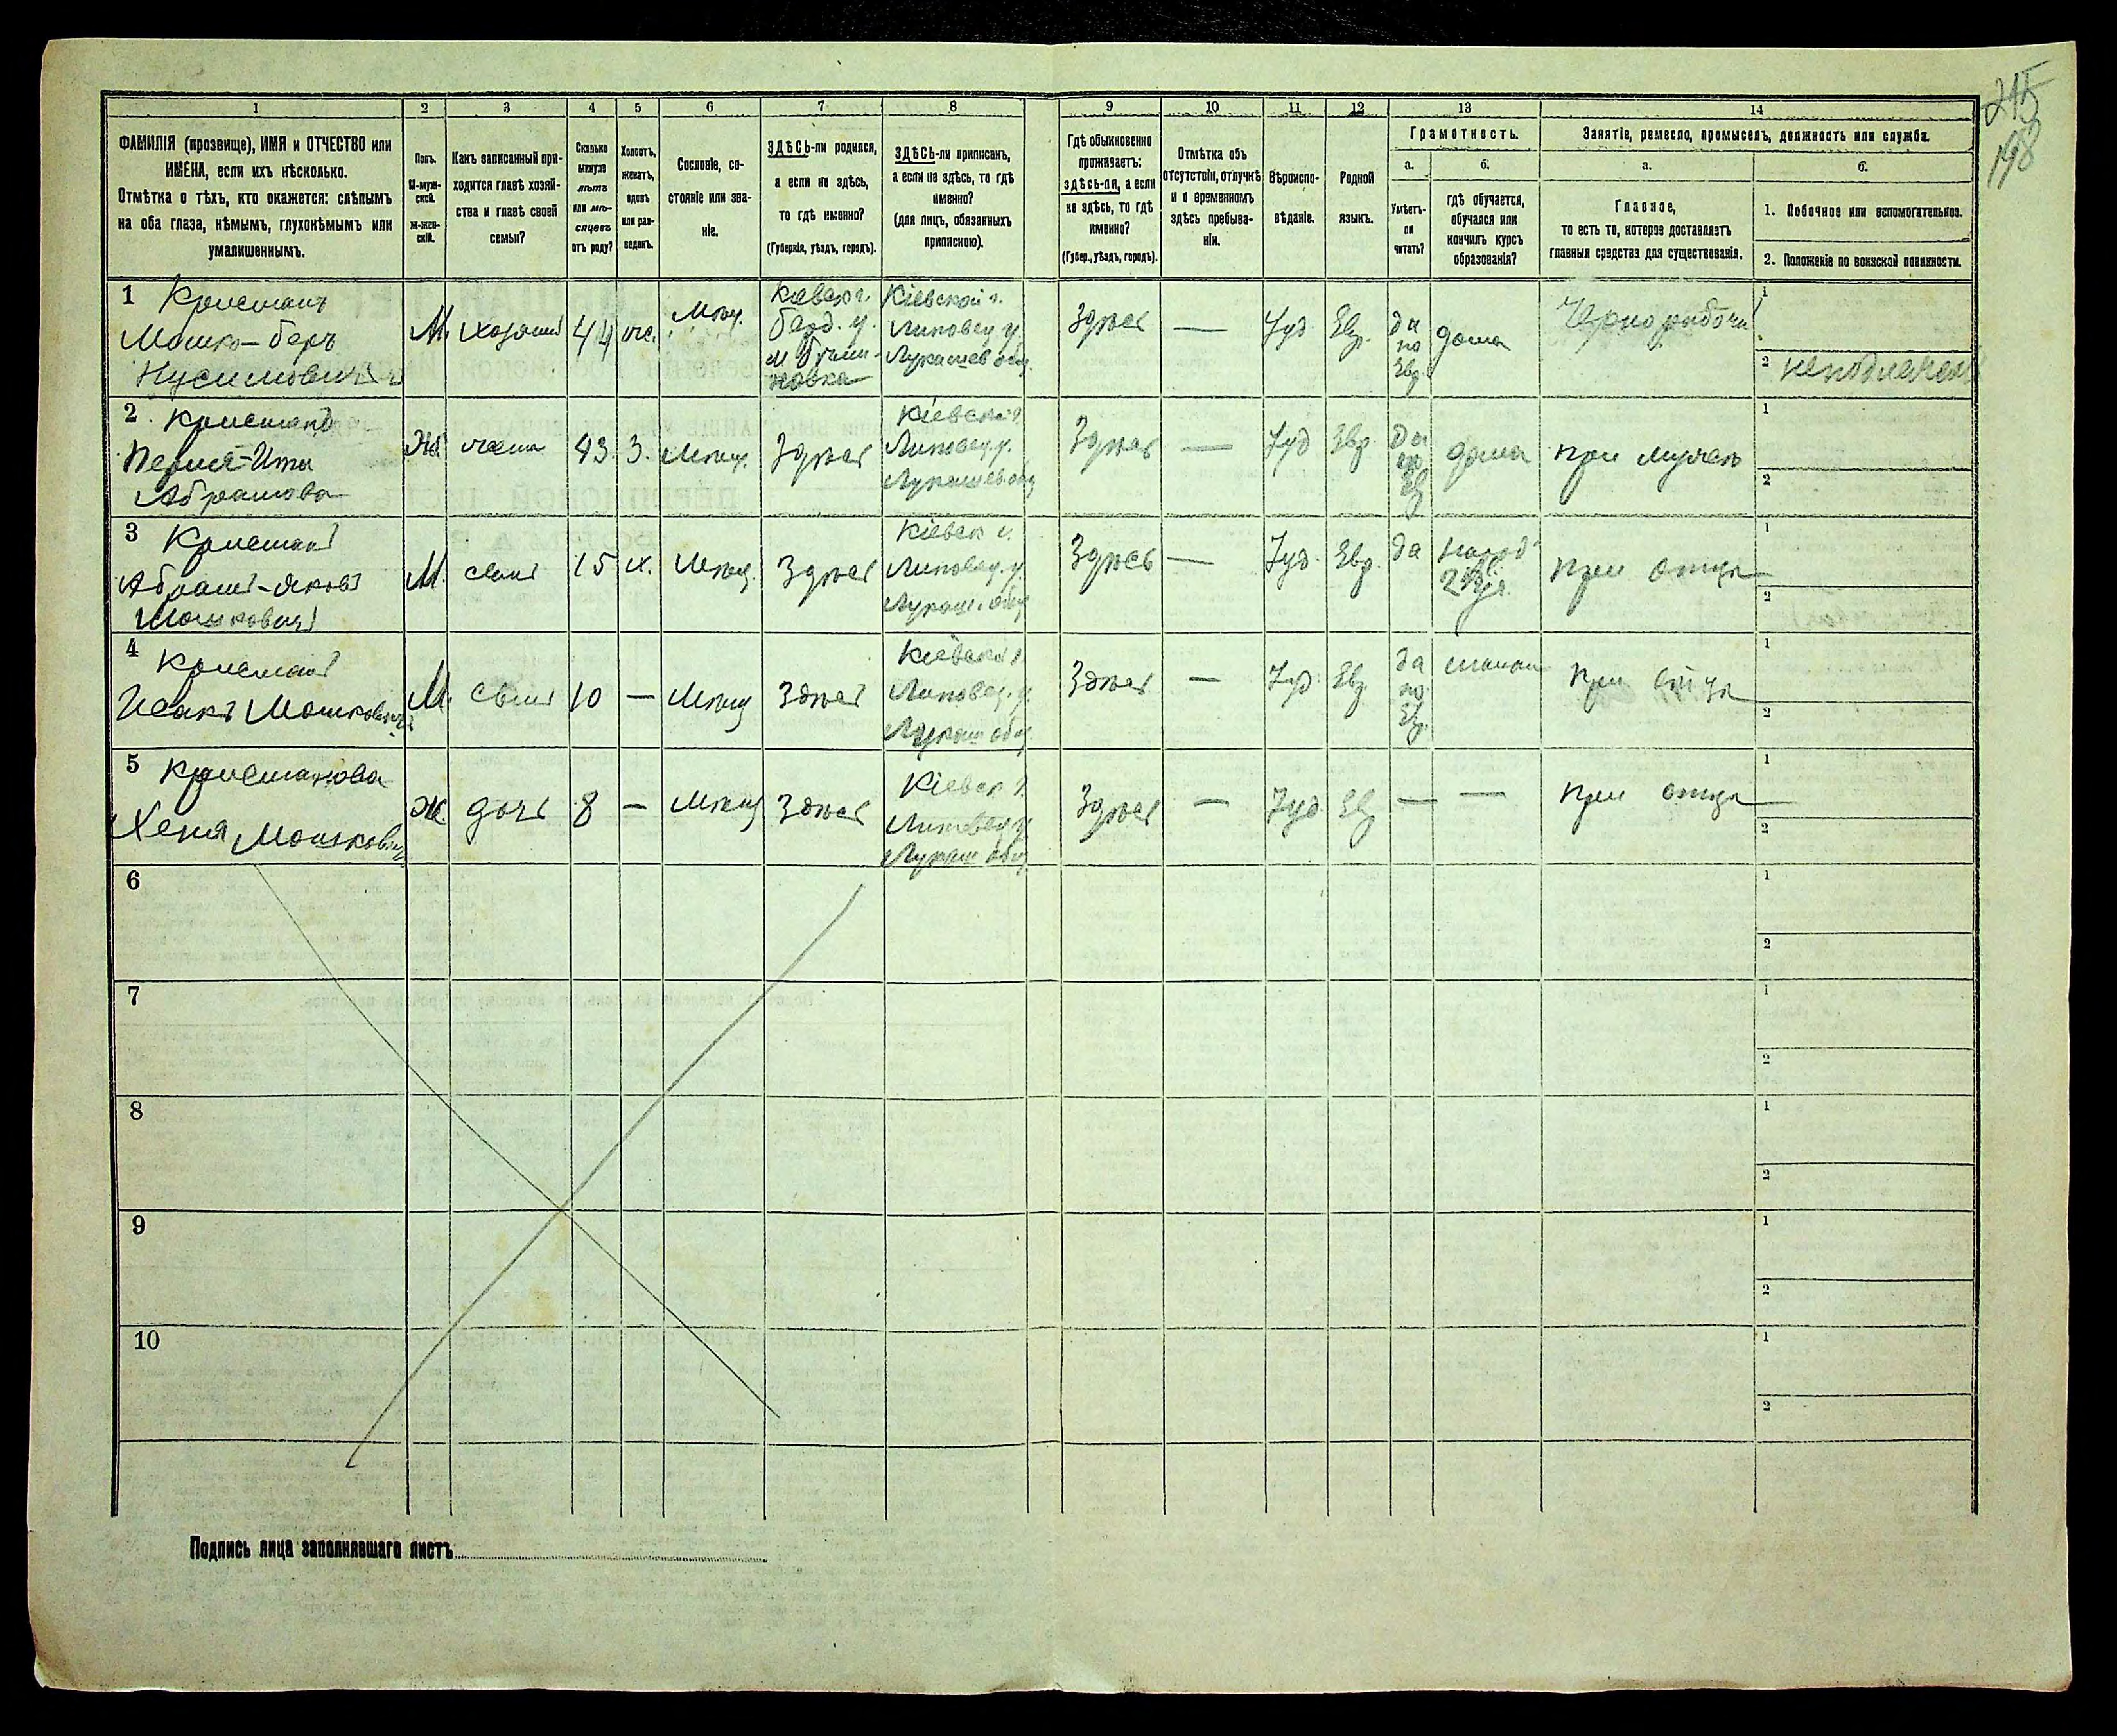 215
198
1 2 3 4 5 6 7 8 9 10 11 12 13 14
ФАМИЛІЯ (прозвище), ИМЯ и ОТЧЕСТВО или
ИМЕНА, если ихъ нѣсколько.
Отмѣтка о тѣхъ, кто окажется: слѣпымъ
на оба глаза, нѣмымъ, глухонѣмымъ или
умалишеннымъ.
Полъ.
М-муж-
ской.
Ж-жен-
скій.
Какъ записанный при-
ходится главѣ хозяй-
ства и главѣ своей
семьи?
Сколько
минуло
лѣтъ
или мѣ-
сяцевъ
отъ роду?
Холостъ,
женатъ,
вдовъ
или раз-
веденъ.
Сословіе, со-
стояніе или зва-
ніе.
ЗДѢСЬ-ли родился,
а если не здѣсь,
то гдѣ именно?
(Губернія, уѣздъ, городъ).
ЗДѢСЬ-ли приписанъ,
а если не здѣсь, то гдѣ
именно?
(для лицъ, обязанныхъ
припискою).
Гдѣ обыкновенно
проживаетъ:
здѣсь-ли, а если
не здѣсь, то гдѣ
именно?
(Губер., уѣздъ, городъ).
Отмѣтка объ
отсутствіи, отлучкѣ
и о временномъ
здѣсь пребыва-
ніи.
Вѣроиспо-
вѣданіе.
Родной
языкъ.
Грамотность.
а.
Умѣетъ-
ли
читать?
б.
гдѣ обучается,
обучался или
кончилъ курсъ
образованія?
Занятіе, ремесло, промыселъ, должность или служба.
а.
Главное,
то есть то, которое доставляетъ
главныя средства для существованія.
б.
1. Побочное или вспомогательное.
2. Положеніе по воинской повинности.
1 Крисманъ
Мошко-беръ
Нусимовичъ
М. хозяинъ 44 же. Мѣщ.
Кіевск г.
берд. у.
Кіевской г.
Липовец у.
Лукашев общ.
Здѣсь — Іуд Евр.
да
по
Евр.
дома
Чернорабочій
1
2
2 Крисманъ
Абрамова
Ж жена 43. З. Мѣщ. Здѣсь
Кіевск г.
Липовец. у.
Лукашев общ
Здѣсь — Іуд Евр.
да
по
Ев
дома при мужѣ
1
2
3 Крисманъ
Абрамъ-Яковъ
Мошковичъ
М. сынъ 15 х. Мѣщ. Здѣсь
Кіевск г.
Липовец. у.
Лукаш. общ
Здѣсь — Іуд. Евр. да
народ.
при отцѣ
1
2
4 Крисманъ
Исакъ Мошковичъ
М. сынъ 10 — Мѣщ Здѣсь
Кіевск г.
Липовец. у.
Лукаш общ
Здѣсь — Іуд Евр.
да
по
Евр.
при отцѣ
1
2
5 Крисманова
Хеня Мошкович
Ж. дочь 8 — Мѣщ Здѣсь
Кіевск г.
Липовец у
Лукаш общ
Здѣсь — Іуд Ев — — при отцѣ
1
2
6
1
2
7
1
2
8
1
2
9
1
2
10
1
2
Подпись лица заполнявшаго листъ